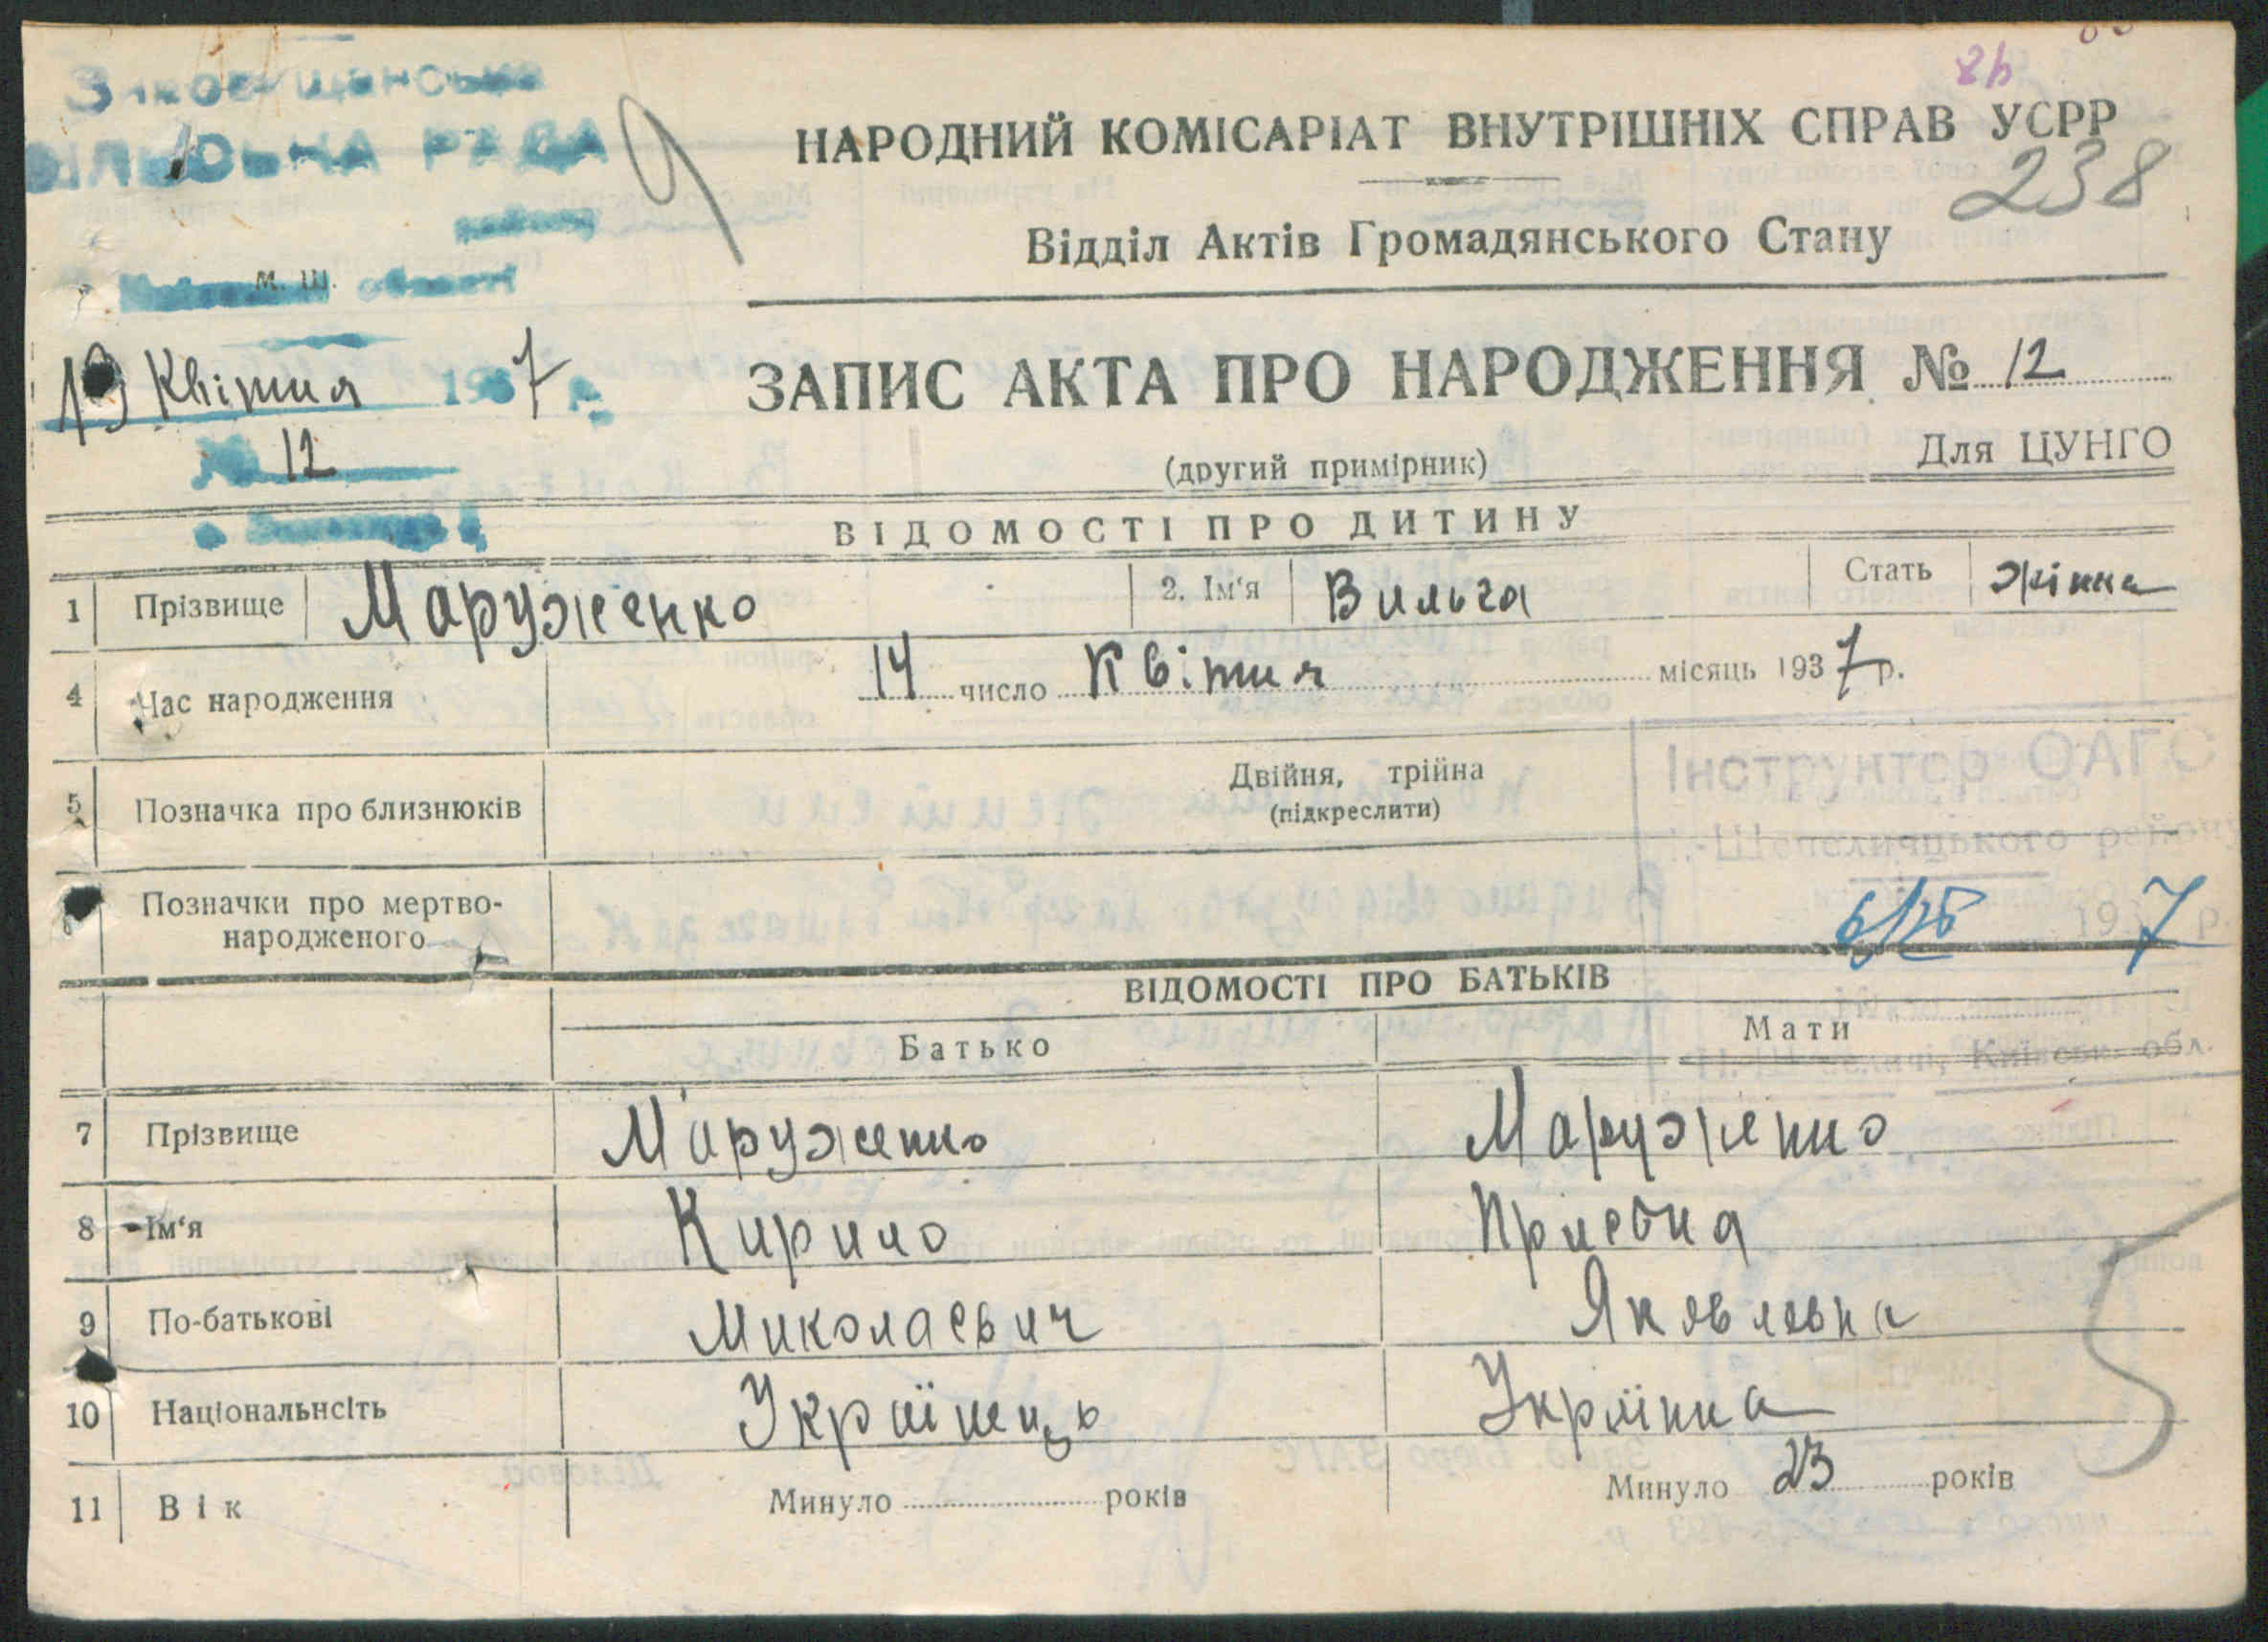 СІЛЬСЬКА РАДА
9
84
НАРОДНИЙ КОМІСАРІАТ ВНУТРІШНІХ СПРАВ УСРР
238
Відділ Актів Громадянського Стану
району
М. Ш. області
19 Квітня 1937 р.
№ 12
ЗАПИС АКТА ПРО НАРОДЖЕННЯ № 12
(другий примірник)
Для ЦУНГО
ВІДОМОСТІ ПРО ДИТИНУ
1 Прізвище Маруженко 2. Ім'я Вильга Стать жінка
4 Час народження 14 число Квітня місяць 1937 р.
5 Позначка про близнюків Двійня, трійна
(підкреслити)
Інструктор ОАГС
Шепелицького району
Позначки про мертво-
народженого
1937 р.
ВІДОМОСТІ ПРО БАТЬКІВ
Батько Мати
Київськ. обл.
7 Прізвище Маруженко Маруженко
8 Ім'я Кирило
9 По-батькові Миколаевич Яковлевна
10 Національнсіть Українець Українка
11 Вік Минуло років Минуло 23 років